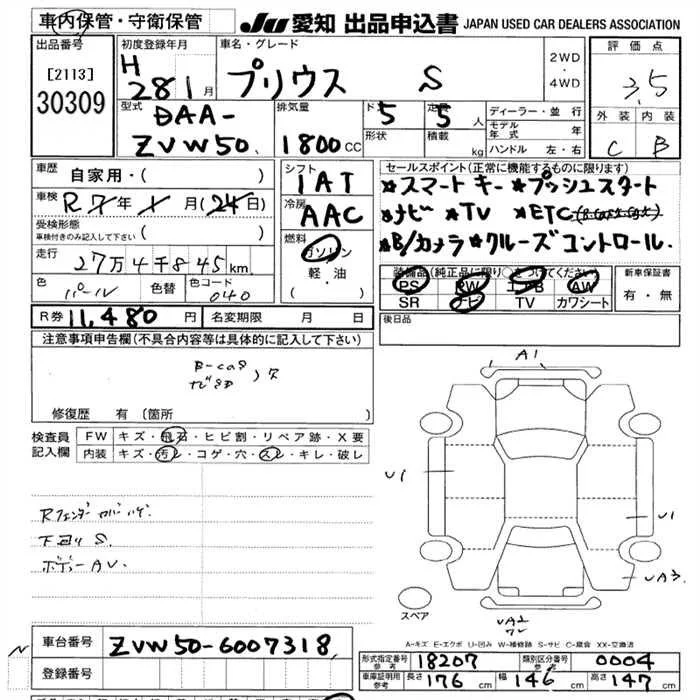 車内保管・守衛保管 JU 愛知 出品申込書 JAPAN USED CAR DEALERS ASSOCIATION
出品番号
[2113]
30309
初度登録年月
H 28 1 月
車名・グレード
プリウス S
2WD
・
4WD
評価点
3.5
外装 内装
C B
型式
DAA-
ZVW50.
排気量
1800 CC
ドア 5
形状
定員 5 人
積載 kg
ディーラー・並行
モデル年式 年
ハンドル 左・右
車歴 自家用・( )
車検 R 7年 1月(24日)
受検形態
車検付きのみ記入して下さい ( )
走行 27万4千845km
色 パール 色替 色コード 040
シフト
1AT
冷房
AAC
燃料
ガソリン
軽・油
・( )
セールスポイント(正常に機能するものに限ります)
★スマートキー ★プッシュスタート
★ナビ ★TV ★ETC
★B/カメラ ★クルーズコントロール.
装備品(純正品に限り○をつけてください)
PS PW エアB AW
SR ナビ TV カワシート
新車保証書
有・無
R券 11,480 円 名変期限 月 日
後日品
注意事項申告欄(不具合内容等は具体的に記入して下さい)
B-cas
ナビSD
ス
修復歴 有 〔箇所 〕
検査員記入欄
FW キズ・飛石・ヒビ割・リペア跡・X要
内装 キズ・汚レ・コゲ・穴・スレ・キレ・破レ
下回り S.
ボディーAV.
A1
U1
U1
UA3
UA2
スペア
A-キズ E-エクボ U-凹み W-補修跡 S-サビ C-腐食 XX-交換済
車台番号 ZVW50-6007318
登録番号
形式指定番号参考 18207 類別区分番号参考 0004
車庫証明用参考 長さ 176 cm 幅 146 cm 高さ 147 cm